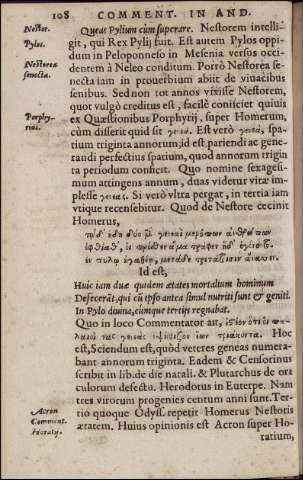 108 COMMENT. IN AND.
Nestor. Queat Pylium cùm superare. Nestorem intelli-
Pylos. git, qui Rex Pylij fuit. Est autem Pylos oppi-
dum in Peloponneso in Mesenia versus occi-
Nestorea dentem à Neleo conditum. Porrò Nestorea se-
senecta. necta iam in prouerbium abiit de viuacibus
senibus. Sed non tot annos vixisse Nestorem,
quot vulgò creditus est, facilè conijciet quiuis
Porphy- ex Quæstionibus Porphyrij, super Homerum,
rius. cùm disserit quid sit γενεά. Est verò γενεά, spa-
tium triginta annorum, id est pariendi ac gene-
randi perfectius spatium, quod annorum trigin
ta periodum conficit. Quo nomine sexagesi-
mum attingens annum, duas videtur vitæ im-
plesse γενεάς. Si verò vltra pergat, in tertia iam
vtique recensebitur. Quod de Nestore cecinit
Homerus,
τῷ δ' ἤδη δύο μὲν γενεαὶ μερόπων ἀνθρώπων
ἐφθίαθ', οἵ
Id est,
Huic iam duæ quidem ætates mortalium hominum
Defecerāt, qui cū ipso antea simul nutriti sunt & geniti.
In Pylo diuina, cúmque tertijs regnabat.
Quo in loco Commentator ait,
Hoc
est, Sciendum est, quòd veteres geneas numera-
bant annorum triginta. Eadem & Censorinus
scribit in lib. de die natali. & Plutarchus de ora
culorum defectu. Herodotus in Euterpe. Nam
tres virorum progenies centum anni sunt. Ter-
Acron tio quoque Odyss. repetit Homerus Nestoris
Comment. ætatem. Huius opinionis est Acron super Ho-
Horatij. ratium,